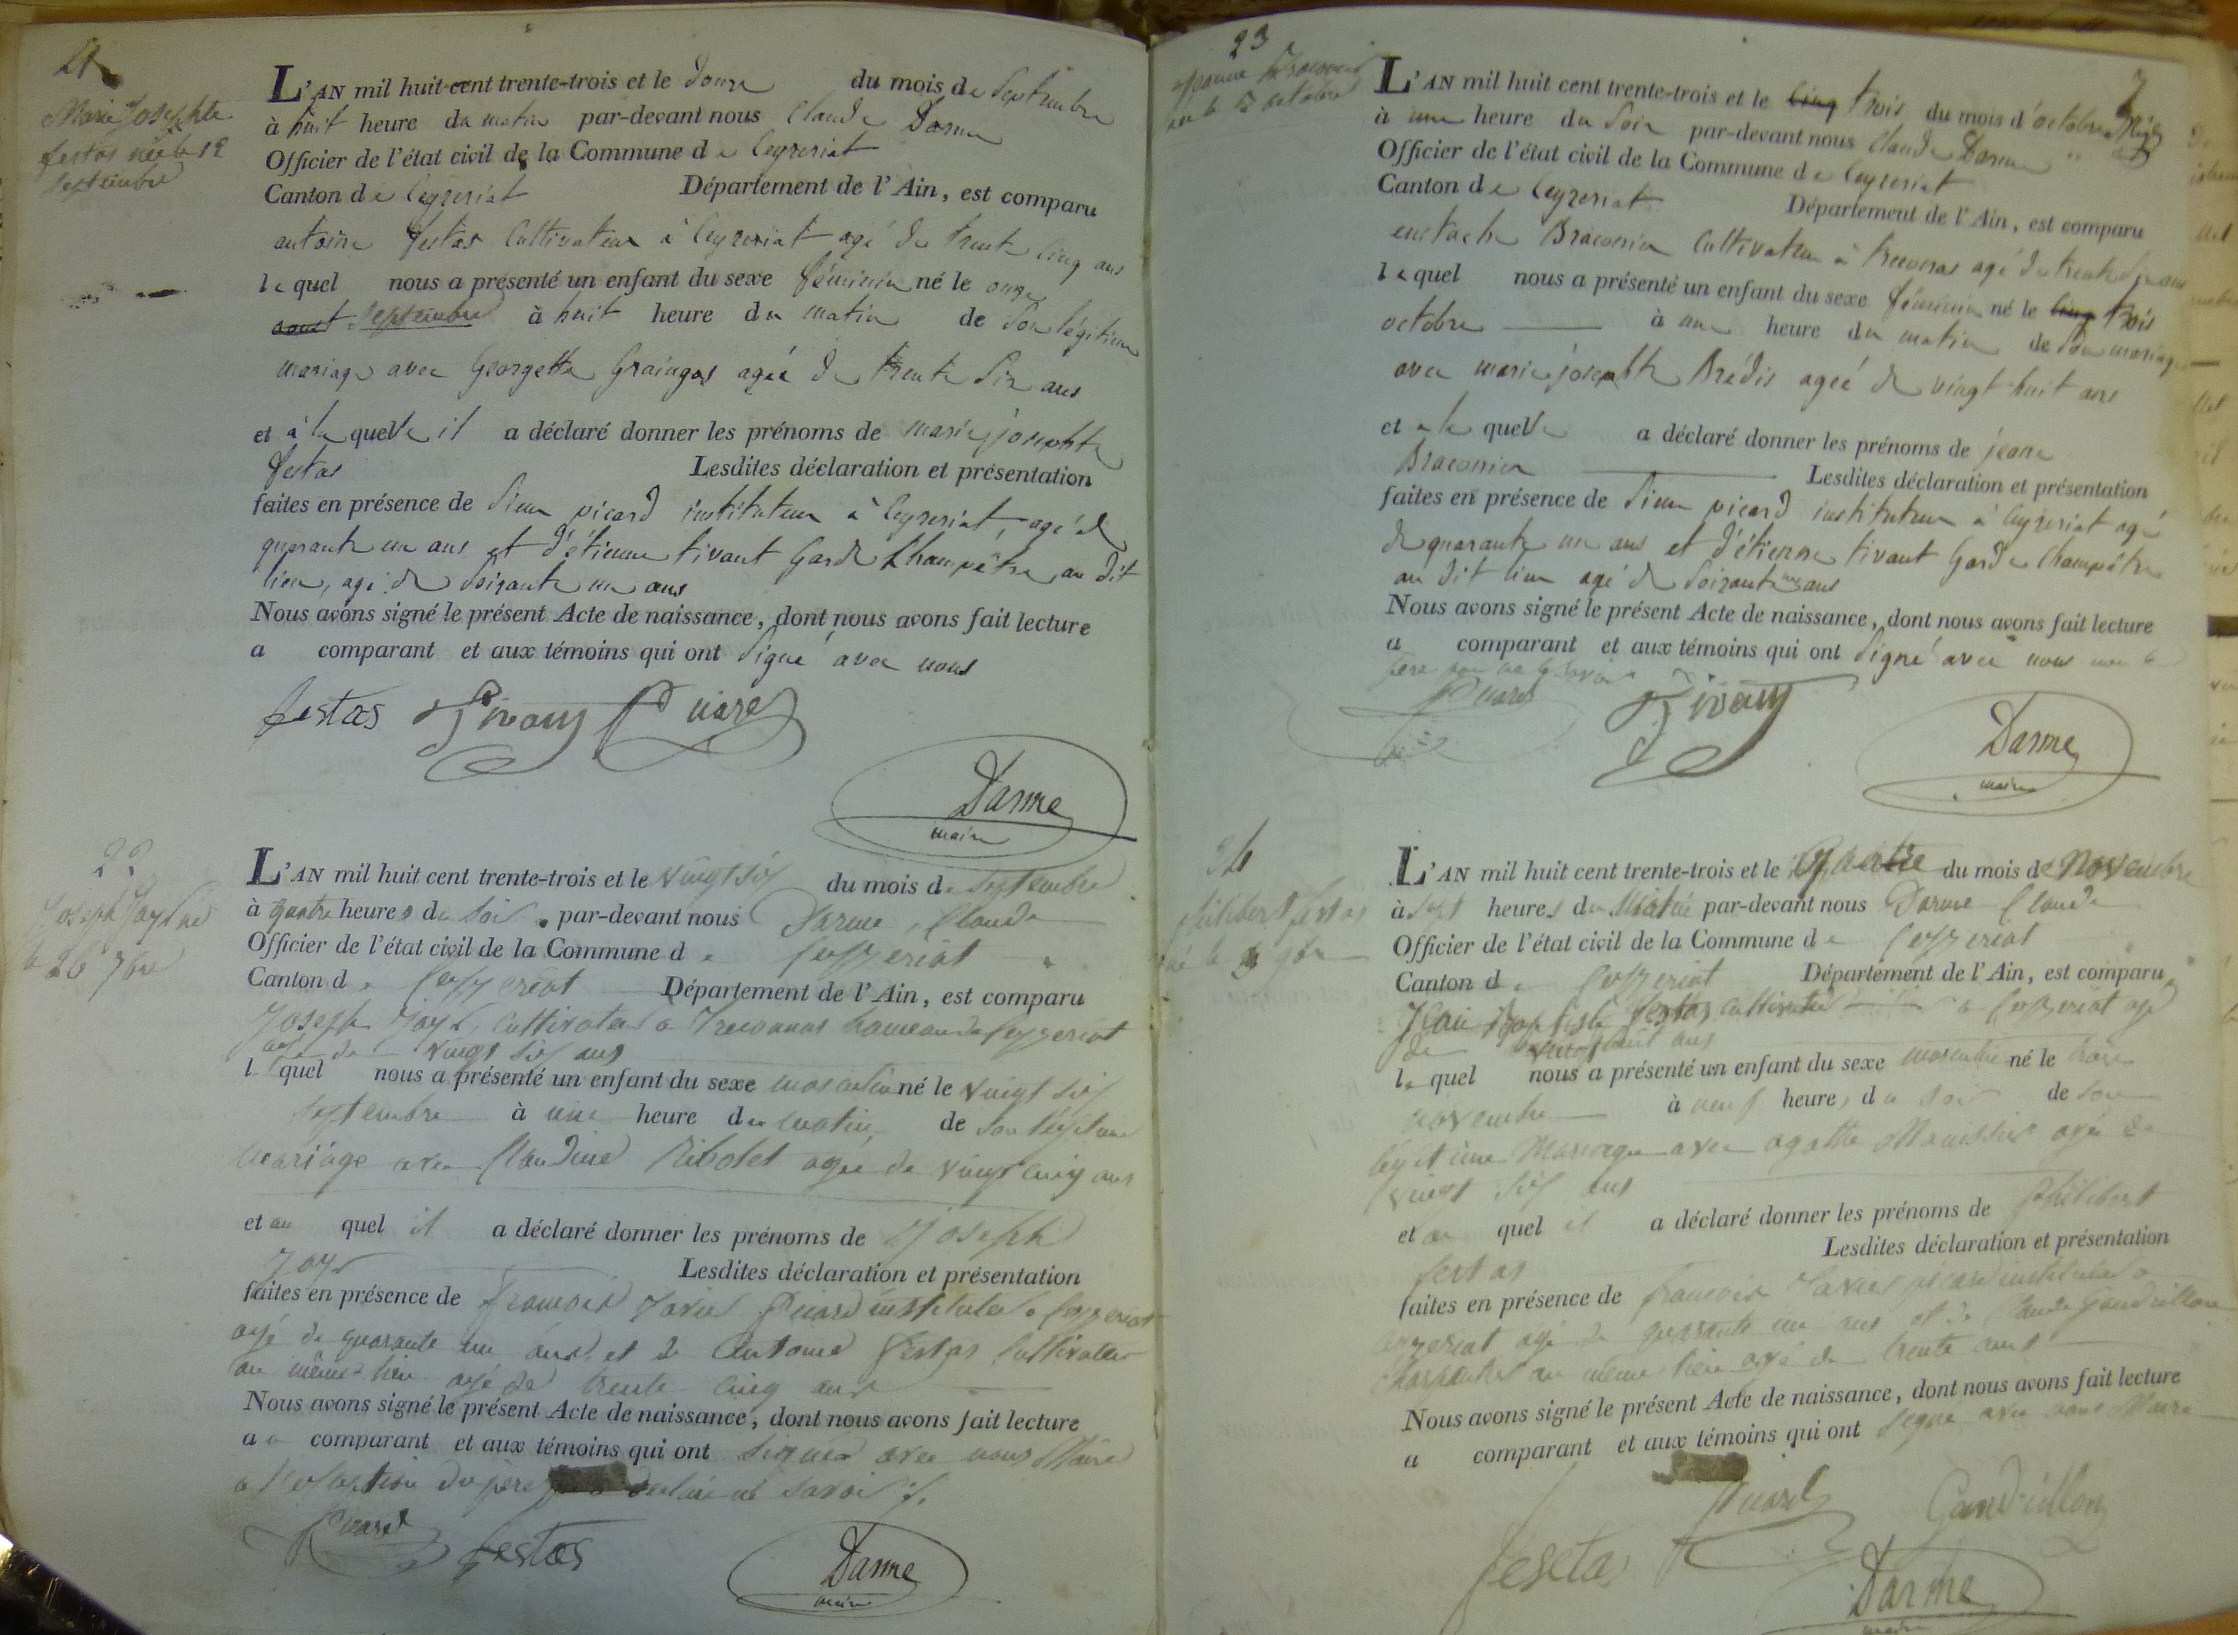 21
Marie Josephte
festas née le 12
Septembre
L'AN mil huit cent trente-trois et le douze du mois de Septembre
à huit heure du matin par-devant nous Claude Darme
Officier de l'état civil de la Commune de Ceyzeriat
Canton de Ceyzeriat Département de l'Ain, est comparu
antoine festas Cultivateur à Ceyzeriat agé de trente cinq ans
lequel nous a présenté un enfant du sexe féminin né le onze
aoust Septembre à huit heure du matin de Son légitime
mariage avec Georgette Graingos agée de trente Six ans
et à la quelle il a déclaré donner les prénoms de marie josephte
festas Lesdites déclaration et présentation
faites en présence de Sieur picard instituteur à Ceyzeriat, agé de
quarante un ans et d'étienne tivant Garde Champêtre au dit
lieu, agé de Soixante un ans
Nous avons signé le présent Acte de naissance, dont nous avons fait lecture
a comparant et aux témoins qui ont Signé avec nous
festas Tivant Picard
Darme
maire
22
Joseph Joyr né
le 26 7bre
L'AN mil huit cent trente-trois et le vingt six du mois de Septembre
à quatre heures du Soir par-devant nous Darme Claude
Officier de l'état civil de la Commune de Ceyzeriat
Canton de Ceyzeriat Département de l'Ain, est comparu
Joseph Joyr, Cultivateur a Treconnas hameau de Ceyzeriat
agé de vingt six ans
lequel nous a présenté un enfant du sexe masculin né le vingt six
Septembre à une heure du matin, de Son légitime
mariage avec Claudine Ribolet agée de vingt cinq ans
et au quel il a déclaré donner les prénoms de Joseph
Joyr Lesdites déclaration et présentation
faites en présence de francois Xavier Picard instituteur a Ceyzeriat
agé de quarante un ans et de Antoine festas Cultivateur
au même lieu agé de trente cinq ans
Nous avons signé le présent Acte de naissance, dont nous avons fait lecture
au comparant et aux témoins qui ont signés avec nous Maire
a l'exception du père declaré ne savoir
Picard festas
Darme
maire
23
Jeanne Braconnier
née le 3 octobre
7
L'AN mil huit cent trente-trois et le cinq trois du mois d'octobre
à une heure du Soir par-devant nous Claude Darme
Officier de l'état civil de la Commune de Ceyzeriat
Canton de Ceyzeriat Département de l'Ain, est comparu
eustache Braconier Cultivateur à treconas agé de trente ans
lequel nous a présenté un enfant du sexe féminin né le cinq trois
octobre à une heure du matin de Son mariage
avec marie josephte Brédis agée de vingt huit ans
et a la quelle a déclaré donner les prénoms de jeane
Braconier Lesdites déclaration et présentation
faites en présence de Sieur picard instituteur à Ceyzeriat agé
de quarante un ans et d'étienne tivant Garde Champêtre
au dit lieu agé de Soixante un ans
Nous avons signé le présent Acte de naissance, dont nous avons fait lecture
a comparant et aux témoins qui ont Signé avec nous non le
père
Picard Tivant
Darme
maire
24
Philibert festas
né le 3 9bre
L'AN mil huit cent trente-trois et le Quatre du mois de Novembre
à sept heures du Matin par-devant nous Darme Claude
Officier de l'état civil de la Commune de Ceyzeriat
Canton de Ceyzeriat Département de l'Ain, est comparu
Jean Baptiste festas Cultivateur a Ceyzeriat agé
de vingt huit ans
lequel nous a présenté un enfant du sexe masculin né le trois
novembre à neuf heures du soir de son
légitime Mariage avec agathe agée de
vingt six ans
et au quel il a déclaré donner les prénoms de Philibert
festas Lesdites déclaration et présentation
faites en présence de francois Xavier picard instituteur a
Ceyzeriat agé de quarante un ans et de Claude Gandrillon
charpentier au même lieu agé de trente ans
Nous avons signé le présent Acte de naissance, dont nous avons fait lecture
a comparant et aux témoins qui ont signé avec nous Maire
Picard Gandrillon
festas
Darme
maire